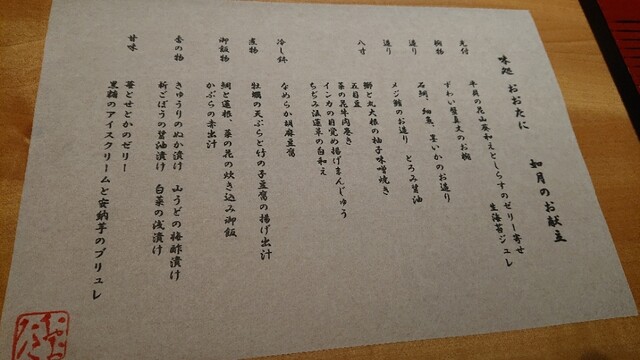 味処 おおたに
如月のお献立
先付
平貝の花山葵和えとしらすのゼリー寄せ
生海苔ジュレ
椀物
ずわい蟹真丈のお椀
造り
石鯛、細魚、墨いかのお造り
造り
メジ鮪のお造り とろみ醤油
八寸
鰤と丸大根の柚子味噌焼き
五目豆
菜の花牛肉巻き
インカの目覚め揚げまんじゅう
ちぢみ法蓮草の白和え
冷し鉢
なめらか胡麻豆腐
煮物
牡蠣の天ぷらと竹の子豆腐の揚げ出汁
御飯物
鯛と蓮根、菜の花の炊き込み御飯
かぶらの赤出汁
香の物
きゅうりのぬか漬け 山うどの梅酢漬け
新ごぼうの醤油漬け 白菜の浅漬け
甘味
苺とせとかのゼリー
黒糖のアイスクリームと安納芋のブリュレ